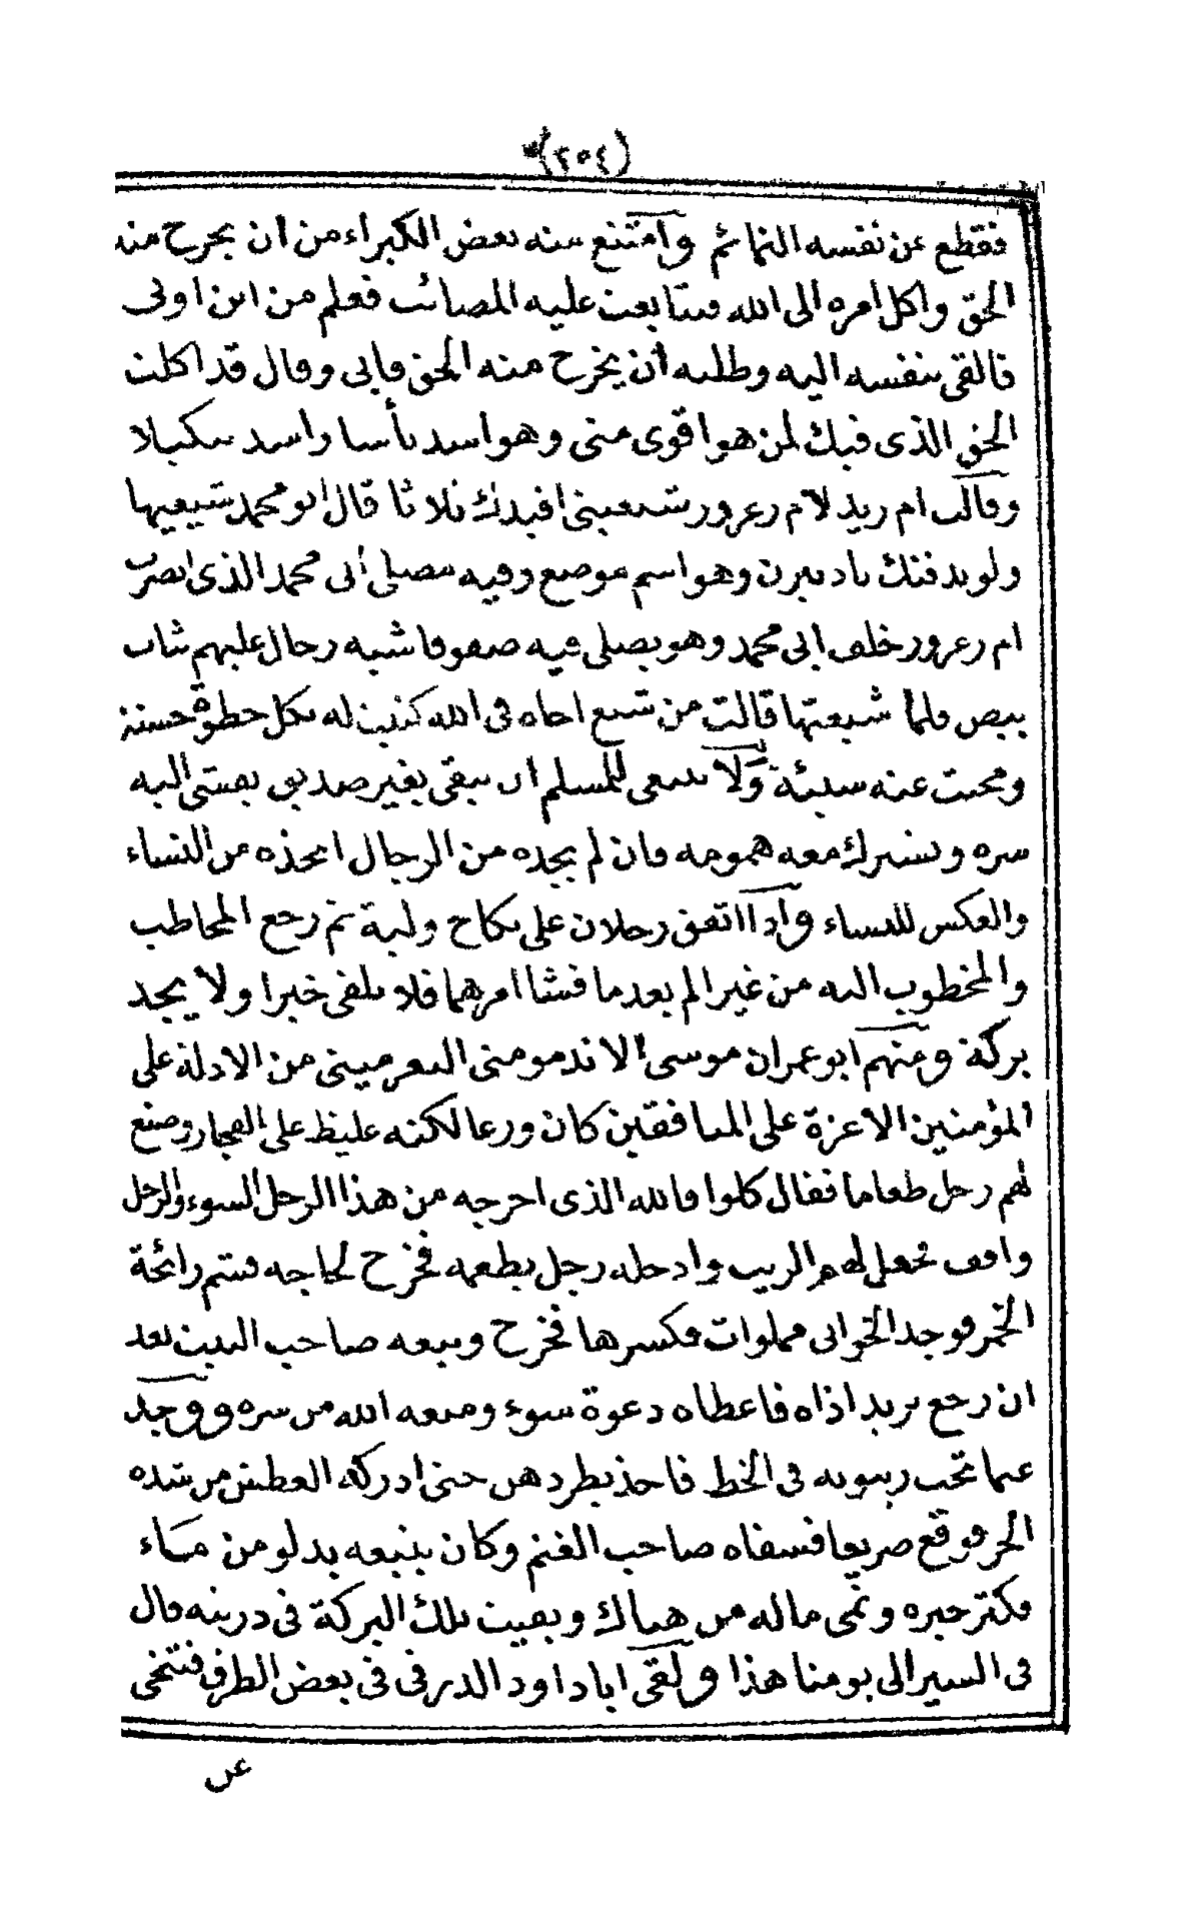 (٢٥٤)
فقطع عن نفسه النمائم وامتنع منه بعض الكبراء من ان يخرج منه
الحق واكل امره الى الله فتتابعت عليه المصائب فعلم من اين اوتى
فالقى بنفسه اليه وطلبه أن يخرج منه الحق فابى وقال قد اكلت
الحق الذى فيك لمن هو اقوى منى وهو اشد بأسا واشد تنكيلا
وقالت ام زيد لام زعرور شيعينى افيدك ثلاثا قال ابو محمد شيعيها
ولو بدفنك نادتيرن وهو اسم موضع وفيه مصلى أبى محمد الذى ابصرت
ام زعرور خلف ابى محمد وهو يصلى فيه صفوفا شبه رجال عليهم ثياب
بيض فلما شيعتها قالت من شيع اخاه فى الله كتبت له بكل خطوة حسنة
ومحيت عنه سيئة ولا ينبغى للمسلم ان يبقى بغير صديق يفشى اليه
سره ويشرك معه همومه فان لم يجده من الرجال اتخذه من النساء
والعكس للنساء واذا اتفق رجلان على نكاح ولية ثم رجع المخاطب
والمخطوب اليه من غير الم بعد ما فشا امرهما فلا يلقى خيرا ولا يجد
بركة ومنهم ابو عمران موسى الاندمومنى النعرميتى من الادلة على
المؤمنين الاعزة على المنافقين كان ورعا لكنه غليظ على الفجار وصنع
لهم رجل طعاما فقال كلوا فالله الذى اخرجه من هذا الرجل السوء والرجل
واقف فجعل لهم الزبيب وادخله رجل يطعمه فخرج لحاجه فشم رائحة
الخمر فوجد الخوابى مملوات فكسرها فخرج وتبعه صاحب البيت بعد
ان رجع يريد اذاه فاعطاه دعوة سوء ومنعه الله من سره ووجد
غنما تحت زيتونه فى الخط فاخذ يطردهن حتى ادركه العطش من شده
الحر فوقع صريعا فسقاه صاحب الغنم وكان يتبعه بدلو من مـاء
فكثر خيره ونمى ماله من هناك وبقيت تلك البركة فى ذريته قال
فى السير الى يومنا هذا ولقى ابا داود الدرفى فى بعض الطرق فتنحى
عن